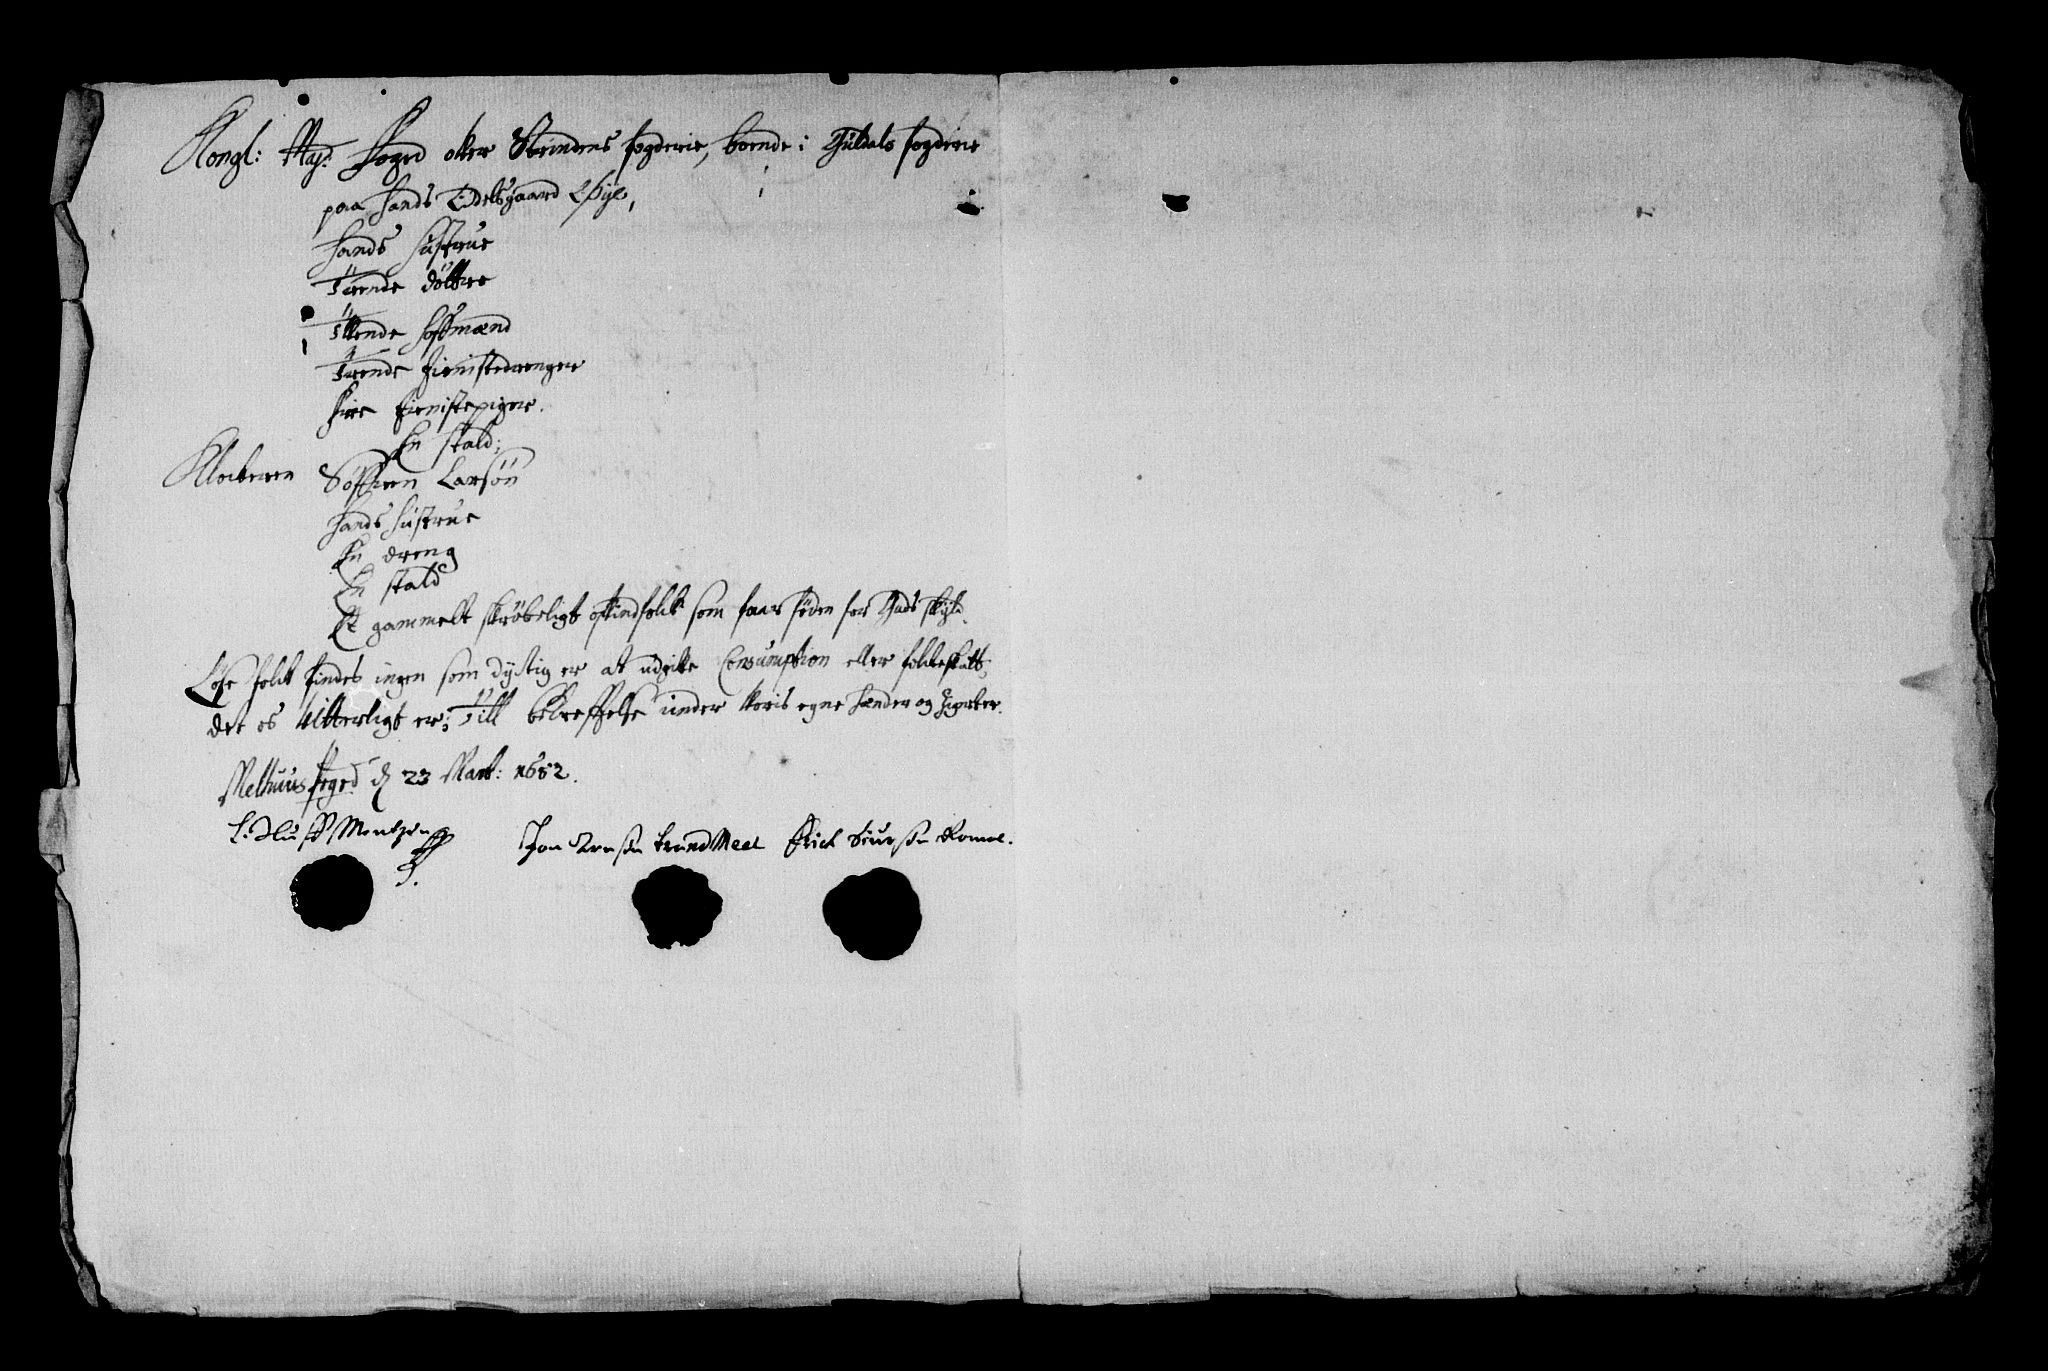 Kongl: May: Foged ofver Strindens fogderie, boende i Guldals fogderie
paa hands Ædelsgaard Øye,
hands hustrue
Trende döttre
Tvende hoffmænd
Trende tienistedrenger
Fire tienistepiger.
En stald;
Klockeren Söffren Larsön
hands hustrue
En dreng
En stald
Et gammelt skröbeligt qvindfolk som faar föden for Guds skyld.
Löse folck findes ingen som dyctig er at udgifve Consumption eller folkeskatt,
det os vitterligt er; Till bekreffelse under voris egne hænder og Zigneter.
Melhuus Pregd d 23 Mart: 1682.
Mentzen
Jon Arnsön Erick Siursön